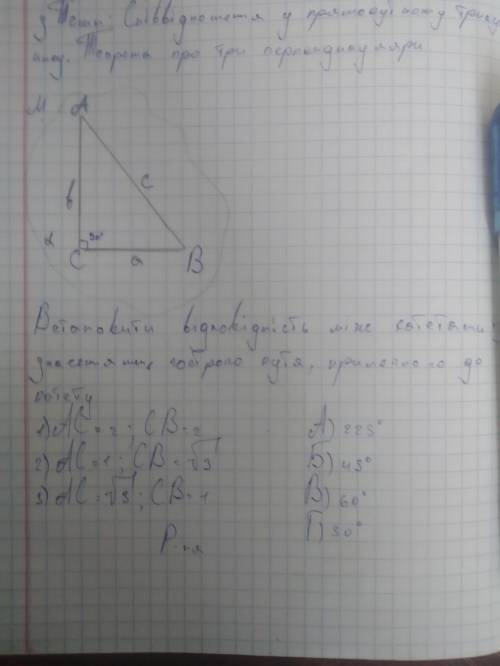 Тема: Співвідношення у прямокутному трику
нику. Теорема про три перпендикуляри
M A
b c
α 90°
C a B
Встановити відповідність між катетами
значеннями гострого кута, прилеглого до
катету
1) AC = 2; CB = 2 А) 225°
2) AC = 1; CB = √3 Б) 45°
3) AC = √3; CB = 1 В) 60°
Г) 30°
Р-ня